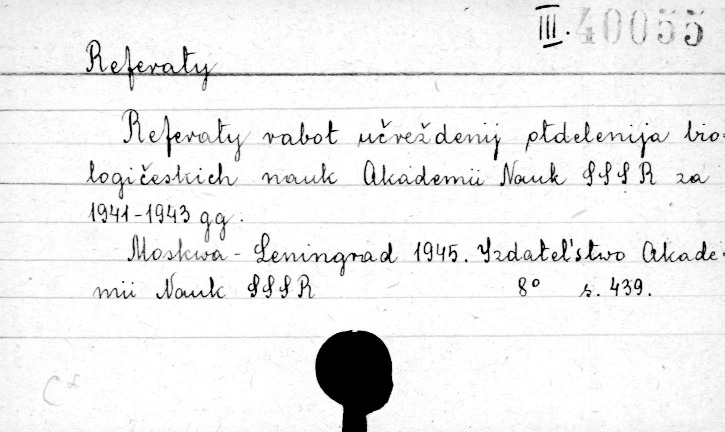 III. 40055
Referaty
Referaty rabot učreždenij otdelenija bio-
logičeskich nauk Akademii Nauk SSSR za
1941-1943 gg.
Moskwa - Leningrad 1945. Izdatel'stwo Akade-
mii Nauk SSSR 8° s. 439.